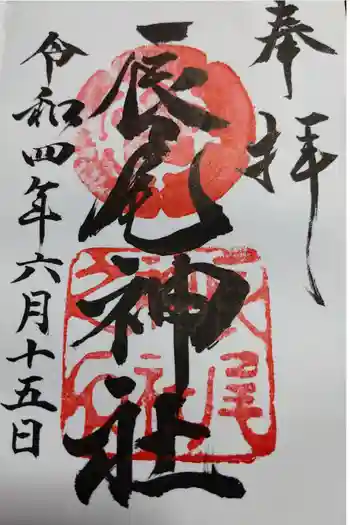 奉拝
辰尾神社
令和四年六月十五日